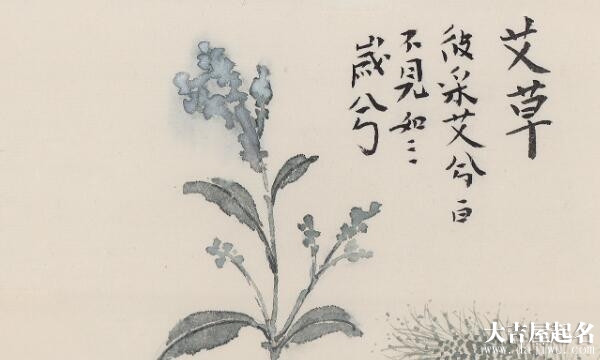 艾草
彼采艾兮一日
不見如三
歲兮
大吉屋起名